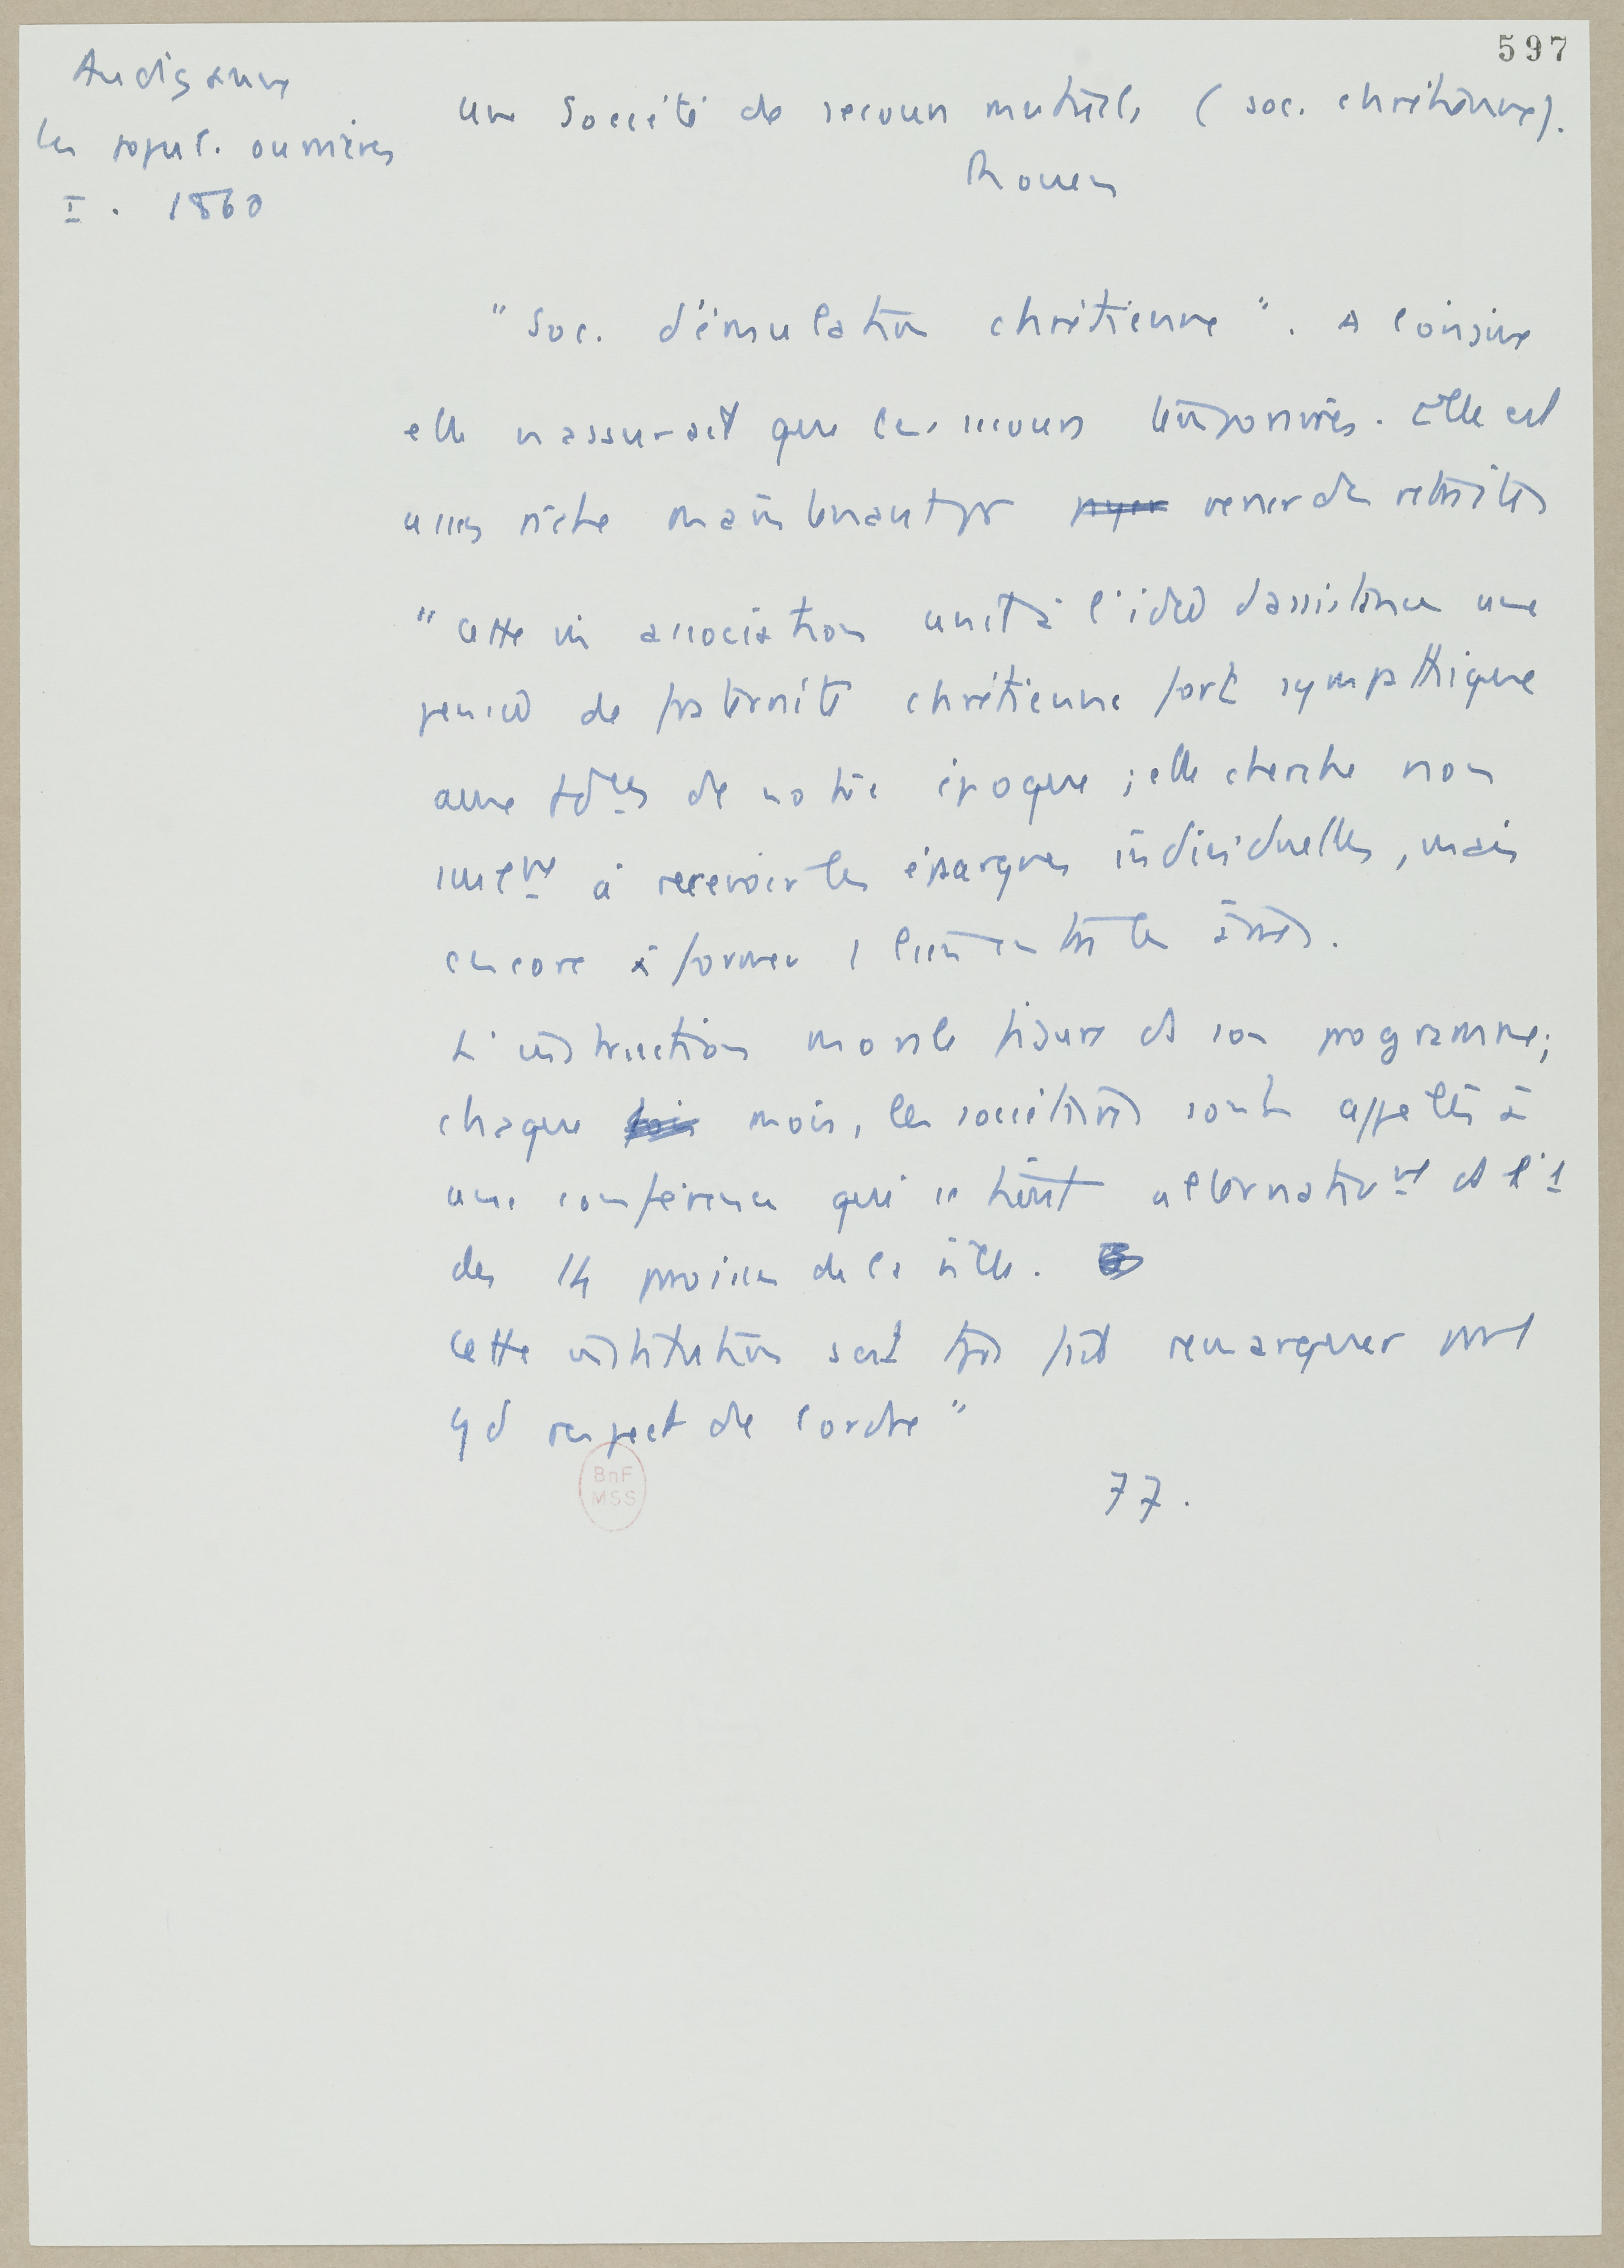 597
Audiganne
les popul. ouvrières
I. 1860
Une Société de secours mutuels (soc. chrétienne).
Rouen
"Soc. d'émulation chrétienne". A l'origine
elle n'assurait que les secours temporaires. Elle est
assez riche maintenant pr payer verser des retraites
"Cette association unit à l'idée d'assistance une
pensée de fraternité chrétienne fort sympathique
aux tdces de notre époque ; elle cherche non
seulemt à recevoir les épargnes individuelles, mais
encore à former 1 lien entre les âmes.
L'instruction morale figure ds son programme ;
chaque fois mois, les sociétaires sont appelés à
une conférence qui se tient alternativemt ds l'1
des 14 paroisses de la ville.
Cette institution s'est tjs fait remarquer par 1
gd respect de l'ordre"
77.
BnF
MSS